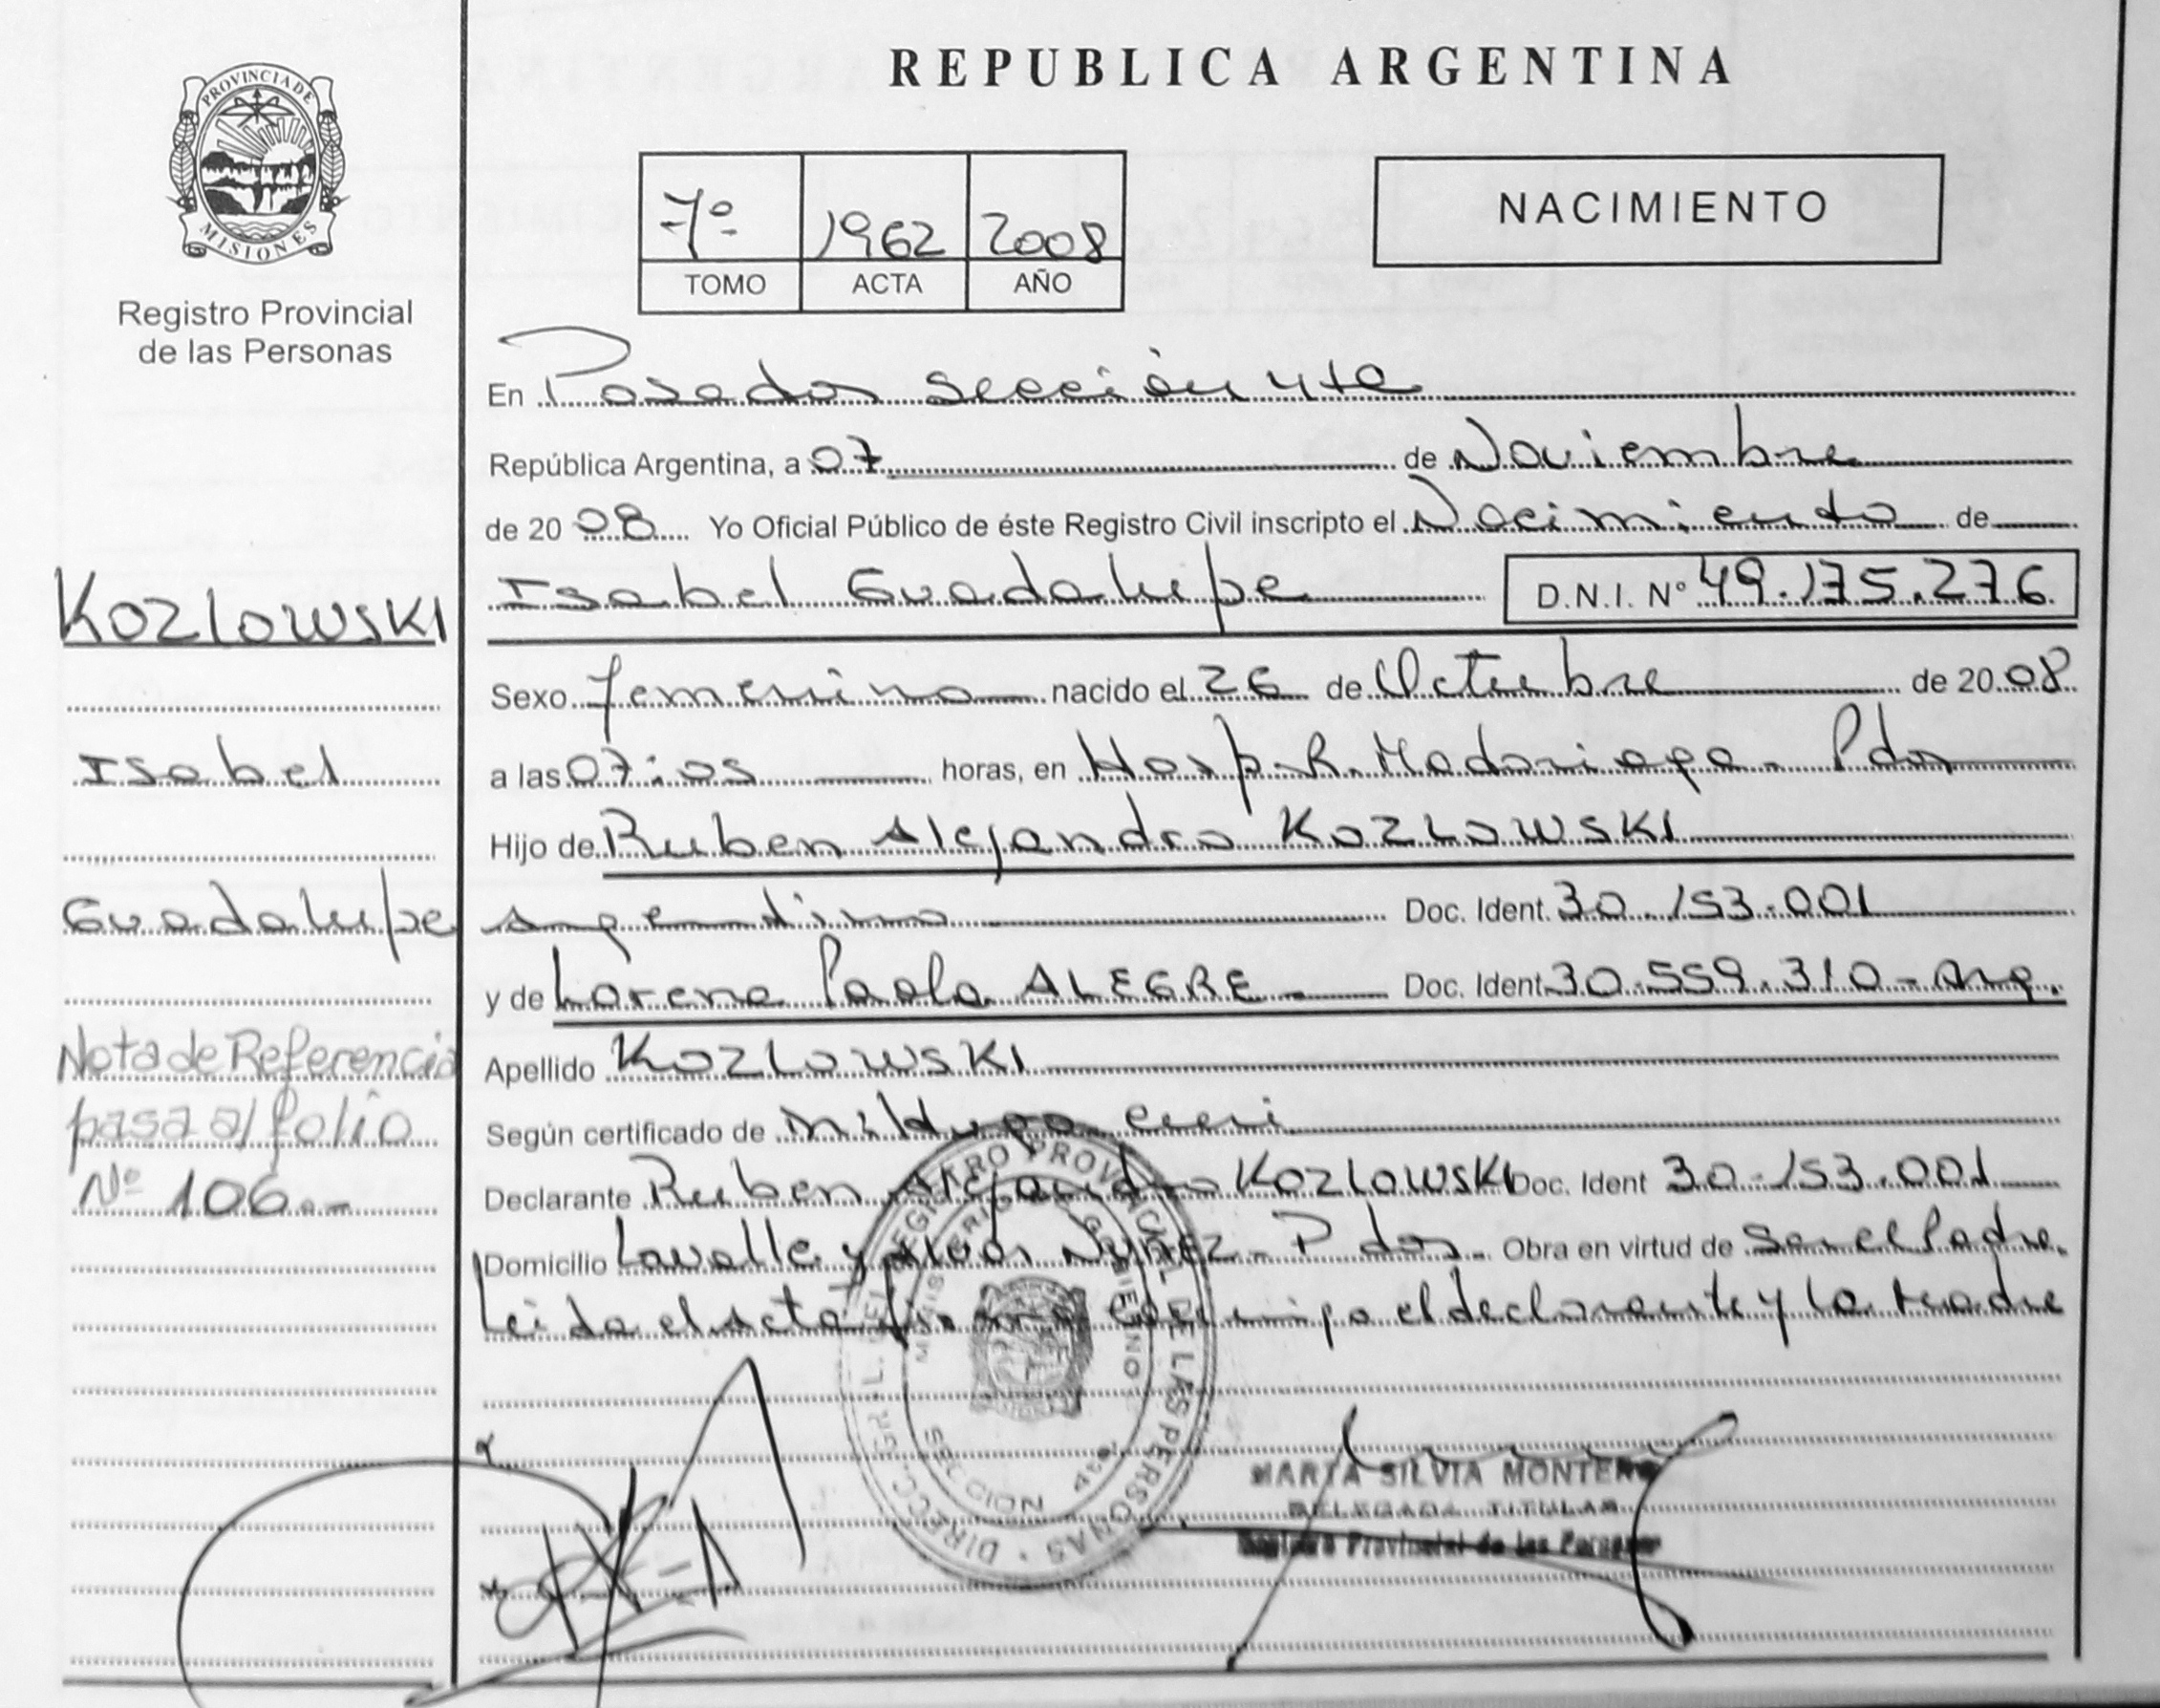 REPUBLICA ARGENTINA
PROVINCIA DE
MISIONES
Registro Provincial
de las Personas
7º 1962 2008
TOMO ACTA AÑO
NACIMIENTO
En Posadas Sección 4ta
República Argentina, a 07 de Noviembre
de 2008 Yo Oficial Público de éste Registro Civil inscripto el Nacimiento de
Isabel Guadalupe D.N.I. Nº 49.175.276
Sexo femenino nacido el 26 de Octubre de 2008
a las 07:05 horas, en Hosp. R. Madariaga - Pdas
Hijo de Ruben Alejandro KOZLOWSKI
Argentino Doc. Ident. 30.153.001
y de Lorena Paola ALEGRE - Doc. Ident 30.559.310 - Arg.
Apellido KOZLOWSKI
Según certificado de
Declarante Ruben Alejandro KOZLOWSKI Doc. Ident 30.153.001
Domicilio Lavalle y Alvar Nuñez - Pdas. Obra en virtud de Ser el Padre.
Leida el acta firma conmigo el declarante y la Madre
KOZLOWSKI
Isabel
Guadalupe
Nota de Referencia
pasa al folio
Nº 106.-
REGISTRO PROVINCIAL DE LAS PERSONAS
MINISTERIO DE GOBIERNO
SECCION 4ta
MARTA SILVIA MONTERO
DELEGADA TITULAR
Registro Provincial de las Personas